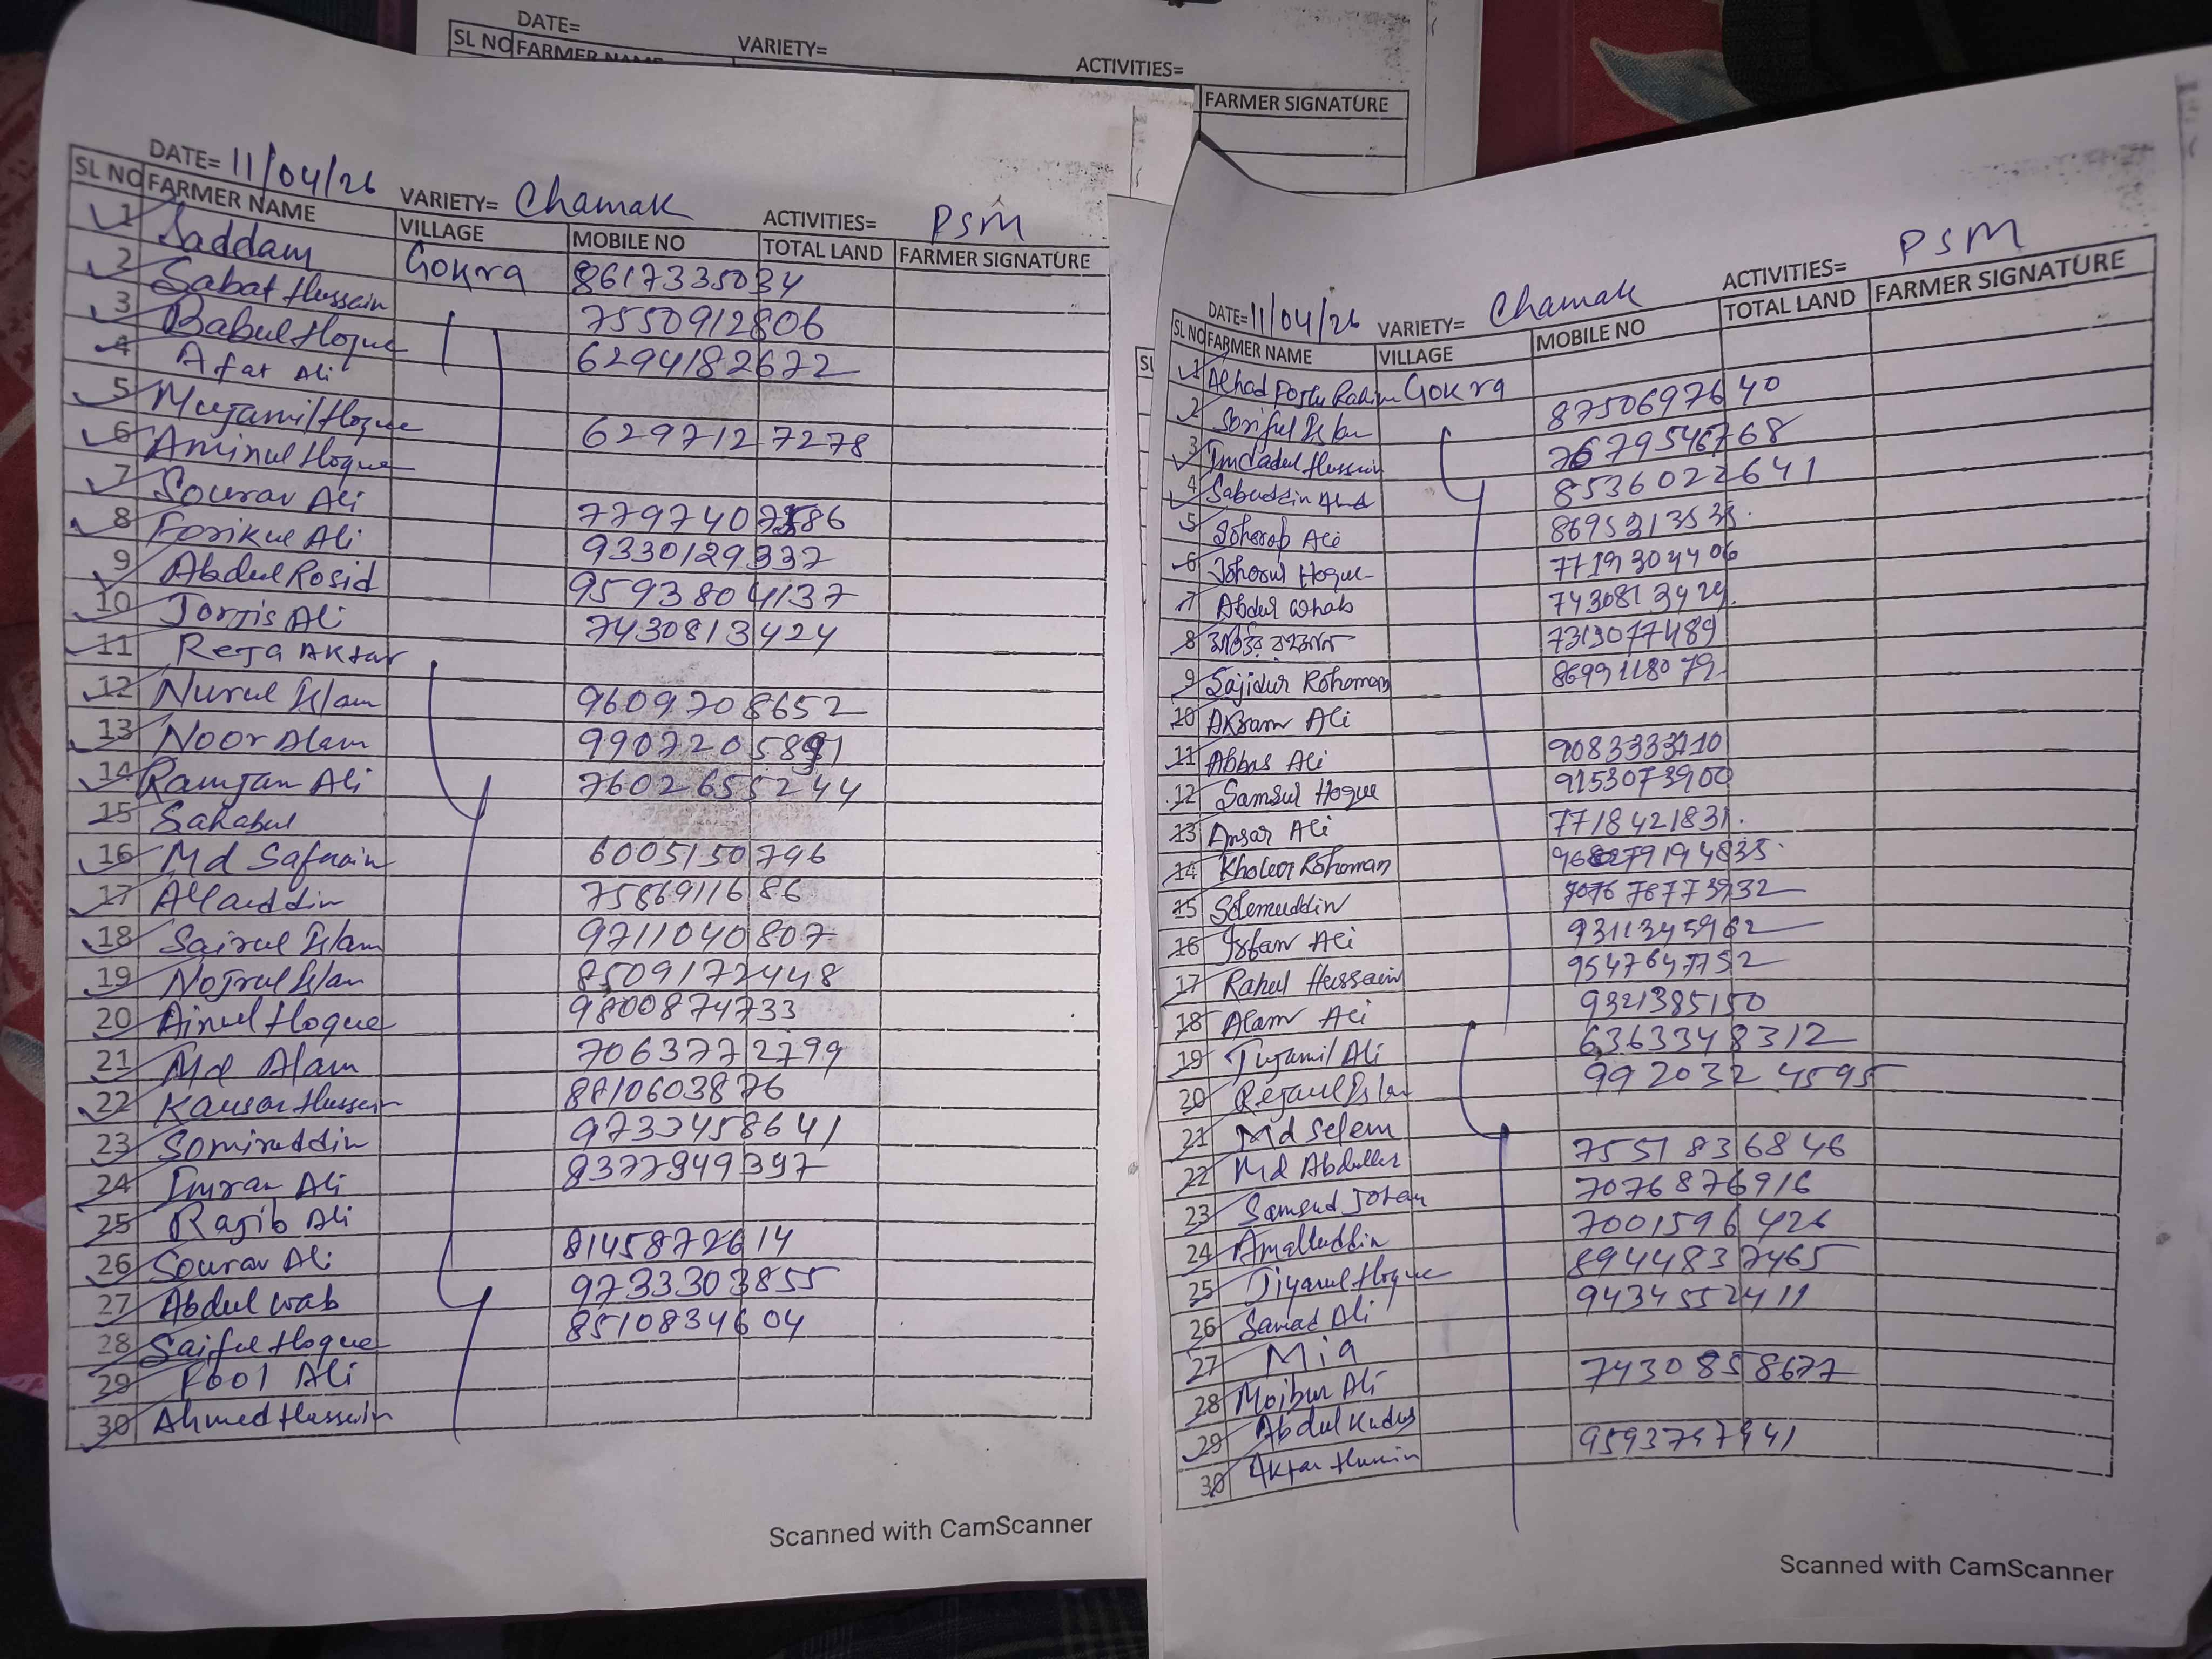 DATE=
VARIETY=
ACTIVITIES=
SL NO FARMER NAME
FARMER SIGNATURE
DATE= 11/04/26 VARIETY= Chamak ACTIVITIES= PSM
SL NO FARMER NAME VILLAGE MOBILE NO TOTAL LAND FARMER SIGNATURE
1 Saddam Gokra 8617335034
2 Sabat Hussain 7550912806
3 Babul Hoque 6294182672
4 Afat Ali
5 Mujamil Hoque 6297127278
6 Aminul Hoque
7 Sourav Ali
8 Forikul Ali 9330129337
9 Abdul Rosid 9593804137
10 Jorjis Ali 7430813424
11 Reja Aktar
12 Nurul Islam 9609708652
13 Noor Alam
14 Ramjan Ali 7602655244
15 Sahabul
16 Md 6005150796
17 Allauddin 7586911686
18 Sairul Islam 9711040807
19 Nojrul Islam 8509172448
20 Ainul Hoque 9800874733
21 Md Alam 7063772799
22 Kausar Hussein 8810603876
23 Somiruddin 9733458641
24 Imran Ali 8377949397
25 Rajib Ali
26 Sourav Ali 8145872614
27 Abdul wab 9733303855
28 Saiful Hoque 8510834604
29 Fool Ali
30 Ahmed Hussein
Scanned with CamScanner
DATE= 11/04/26 VARIETY= Chamak ACTIVITIES= PSM
SL NO FARMER NAME VILLAGE MOBILE NO TOTAL LAND FARMER SIGNATURE
1 Gokra 8750697640
2 Soriful Islam
3 Imdadul Hussain 8536022641
4 Sabuddin
5 Joherob Ali
6 Johorul Hoque 7719304406
7 Abdul Whab
8 7319077489
9 Sajidur Rohoman
10 Akram Ali
11 Abbas Ali
12 Samsul Hoque 9153073900
13 Ansar Ali 7718421831
14 Kholeor Rohoman
15 Solemuddin
16 Irfan Ali
17 Rahul Hussain 9547647752
18 Alam Ali 9321385150
19 Tujamil Ali 6363348312
20 Rejaul Islam 9920324595
21 Md Selem
22 Md Abdullah 7551836846
23 7076876916
24 7001596426
25 Jiyarul Hoque 8944837465
26 Samad Ali 9434552411
27 Mia
28 Moibur Ali 7430858677
29 Abdul Kudus
30 Aktar
Scanned with CamScanner